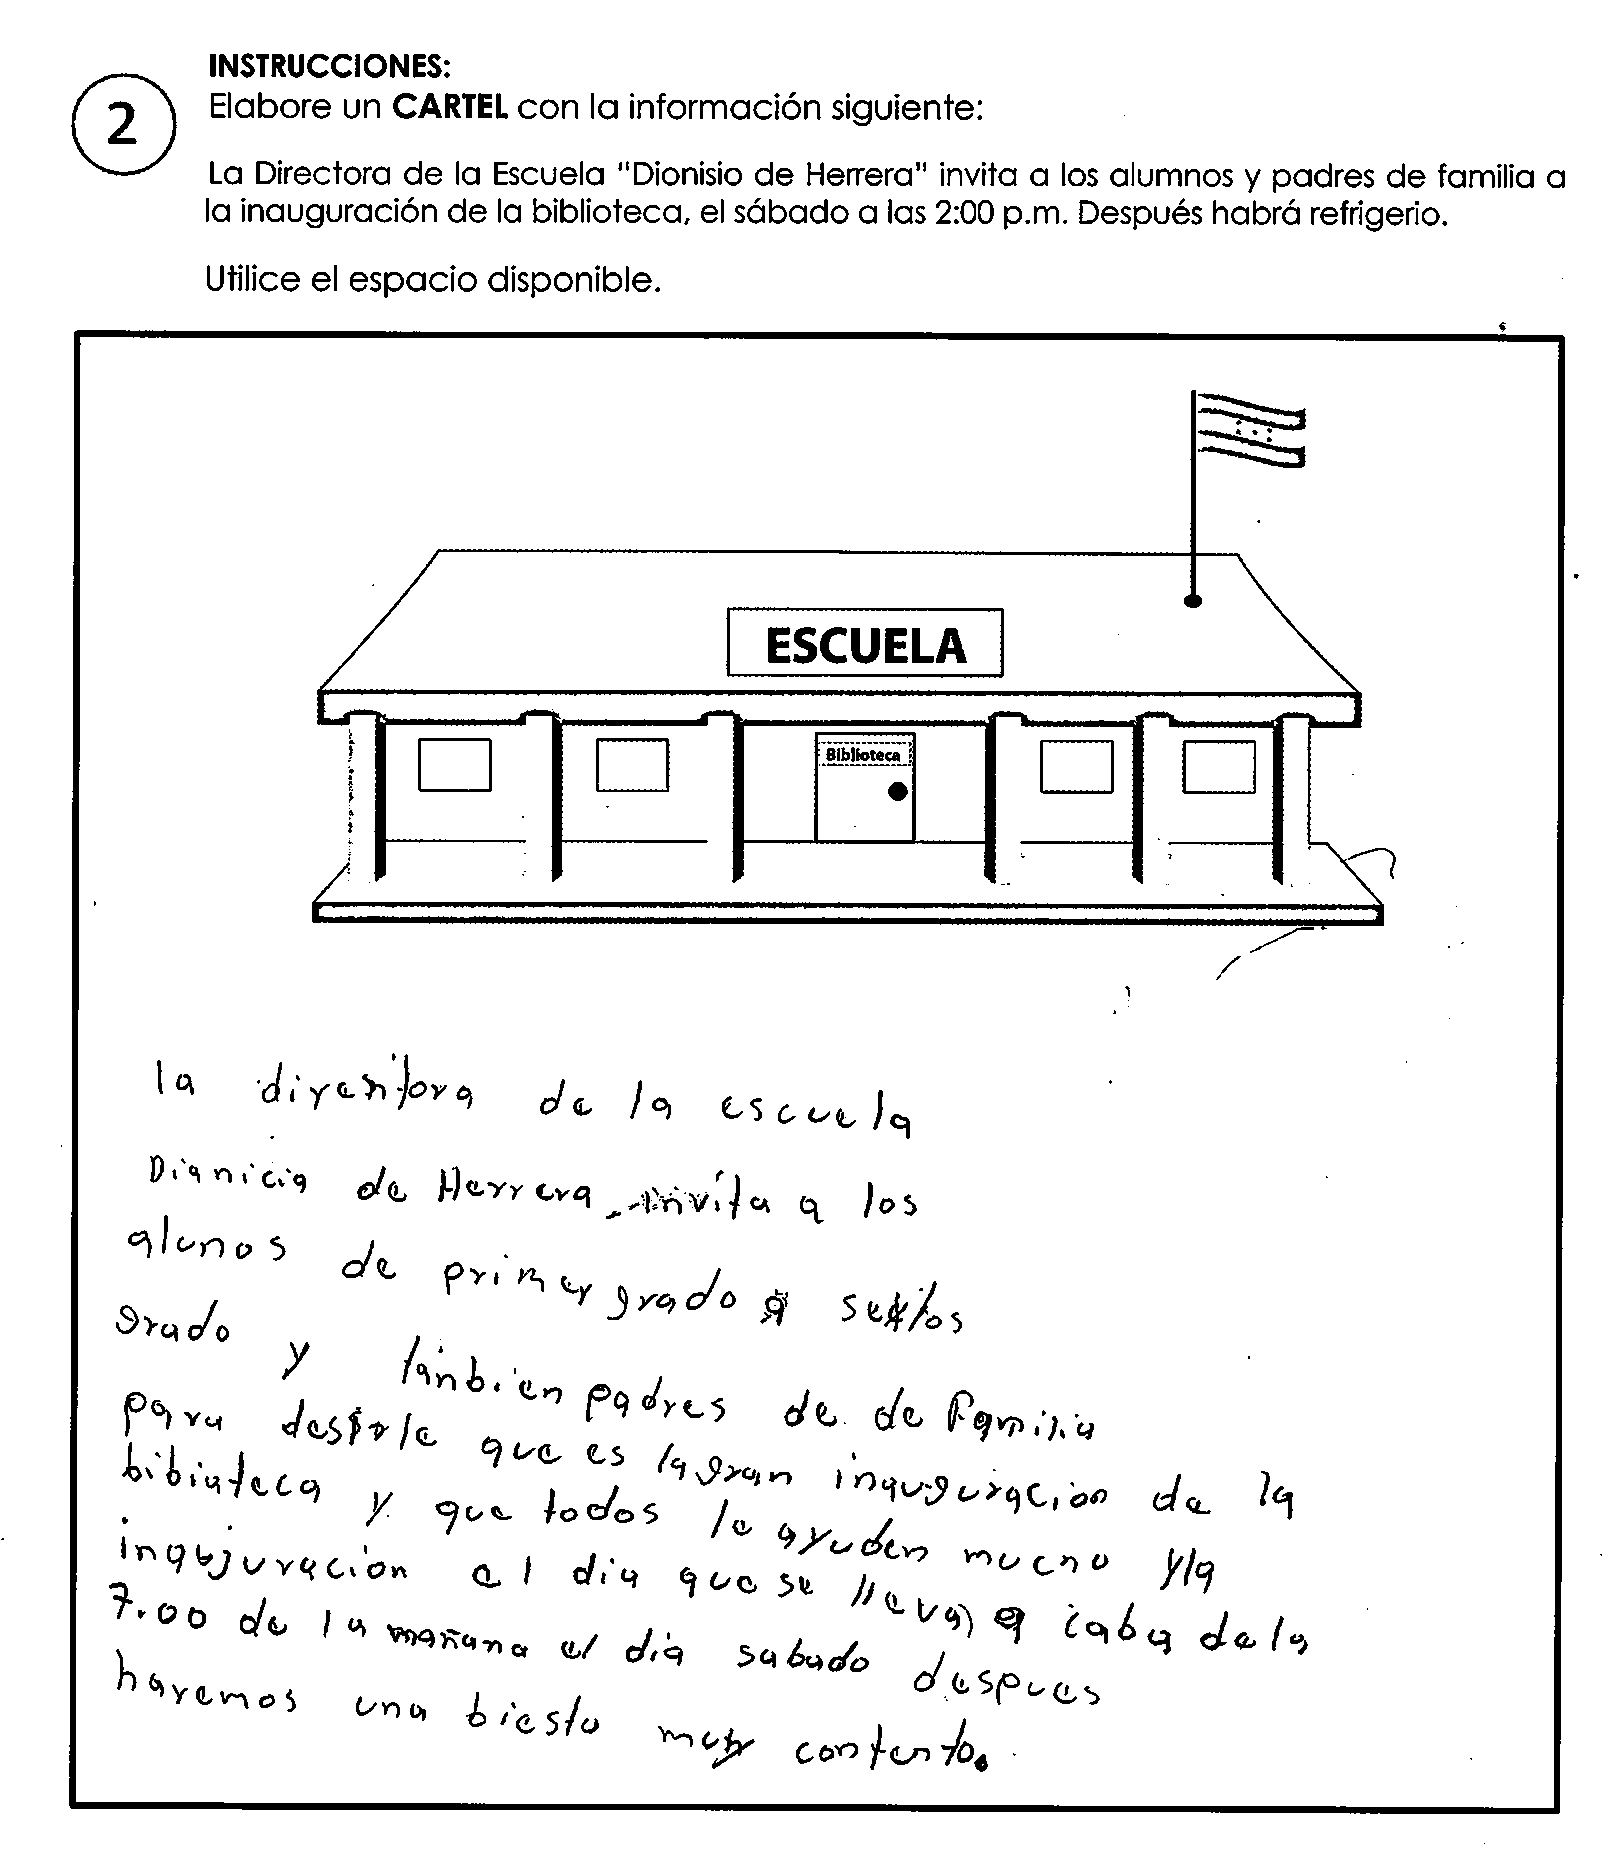 INSTRUCCIONES:
2
Elabore un CARTEL con la información siguiente:
La Directora de la Escuela "Dionisio de Herrera" invita a los alumnos y padres de familia a
la inauguración de la biblioteca, el sábado a las 2:00 p.m. Después habrá refrigerio.
Utilice el espacio disponible.
ESCUELA
Biblioteca
la direntora de la escuela
Dianicia de Herrera invita a los
alunos de primer grado a sextos
grado y tanbien padres de de Familia
para desirle que es la gran inauguracion de la
bibiuteca y que todos le ayuden mucho y la
inaujuracion el dia que se lleva a caba de la
7.00 de la mañana el dia sabado despues
haremos una biesta muy contento.